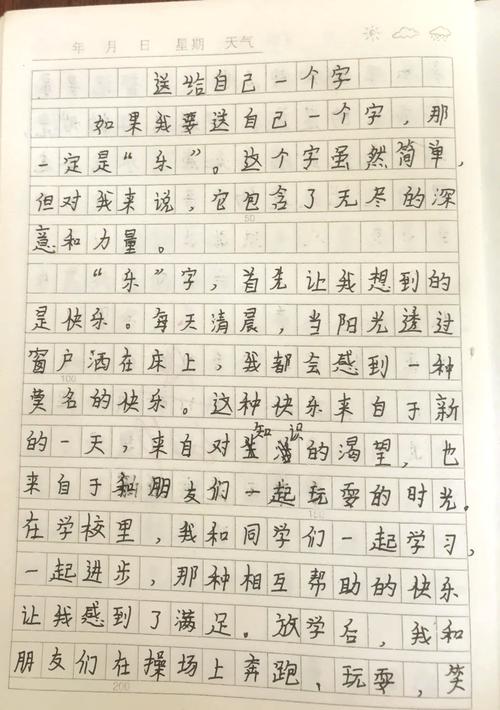 年 月 日 星期 天气
送给自己一个字
如果我要送自己一个字，那
一定是“乐”。这个字虽然简单，
但对我来说，它包含了无尽的深
50
意和力量。
“乐”字，首先让我想到的
是快乐。每天清晨，当阳光透过
窗户洒在床上，我都会感到一种
100
莫名的快乐。这种快乐来自于新
的一天，来自对知识的渴望，也
来自于和朋友们一起玩耍的时光。
150
在学校里，我和同学们一起学习，
一起进步，那种相互帮助的快乐
让我感到了满足。放学后，我和
朋友们在操场上奔跑，玩耍，笑
200